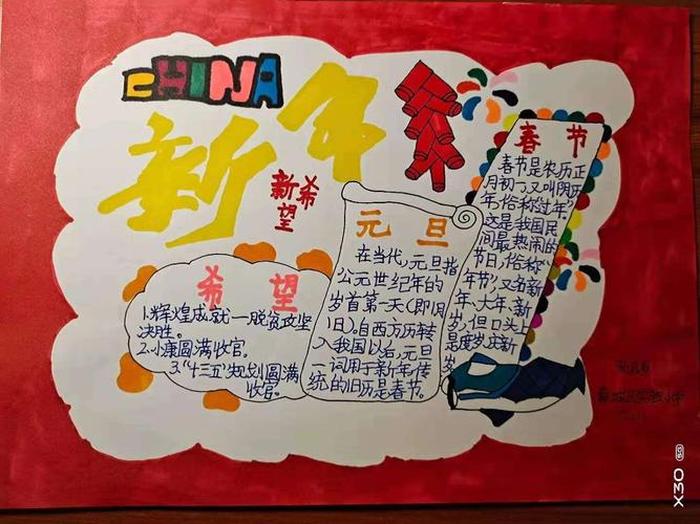 CHINA
新年
新希望
希望
1.辉煌成就一脱贫攻坚
决胜。
2.小康圆满收官。
3."十三五"规划圆满
收官。
元旦
在当代,元旦指
公元世纪年的
岁首第一天(即1月
1日)。自西万历转
入我国以后,元旦
一词用于新年,传
统的旧历是春节。
春节
春节是农历正
月初一,又叫阴历
年,俗称"过年"
这是我国民
间最热闹的
节日,俗称"
年节",又名新
年、大年、新
岁,但口头上
是度岁、庆新
岁。
X30